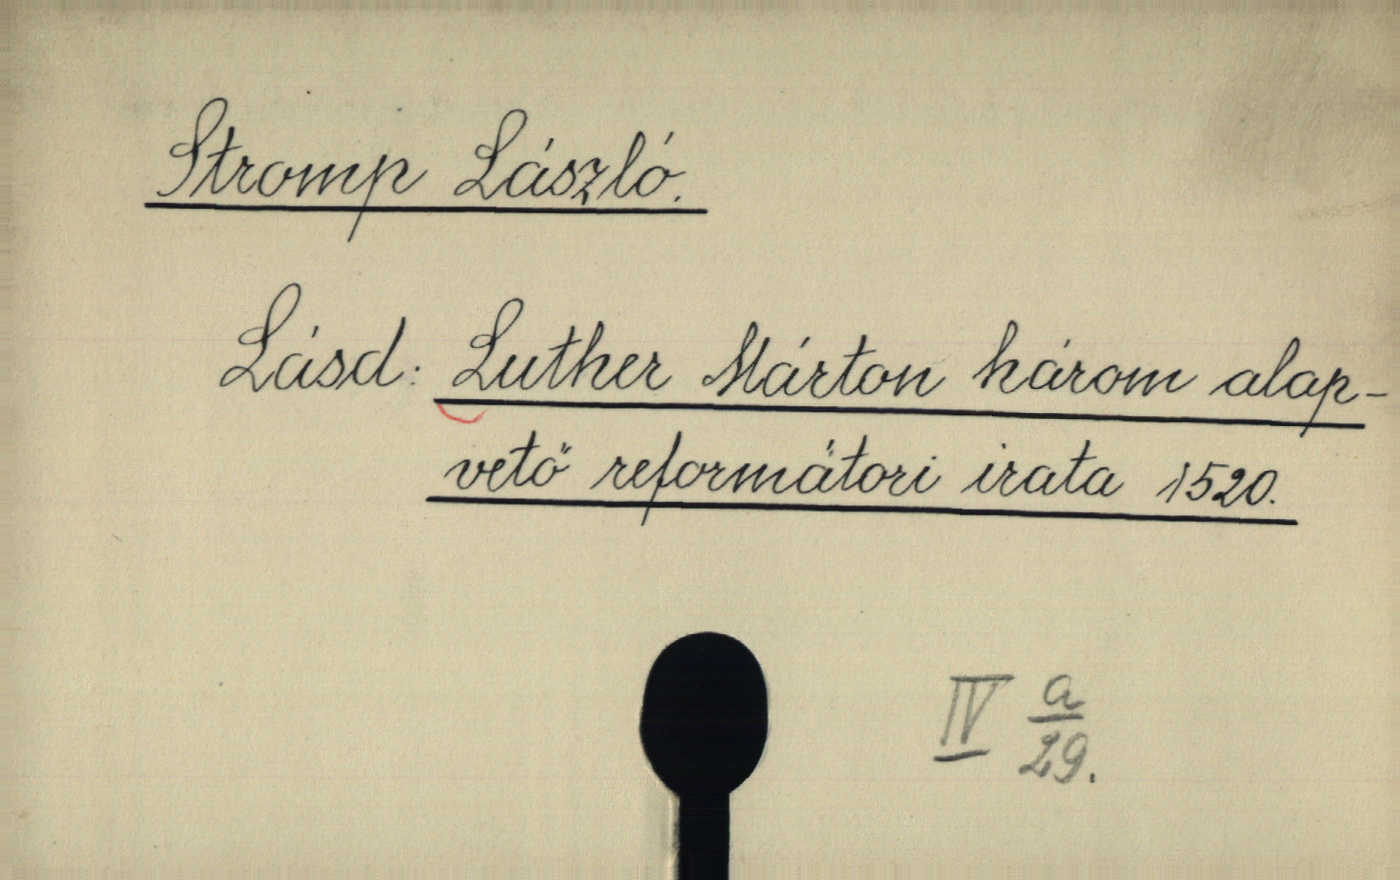 Stromp László.
Lásd: Luther Márton három alap-
vető reformátori irata 1520.
IV a/29.